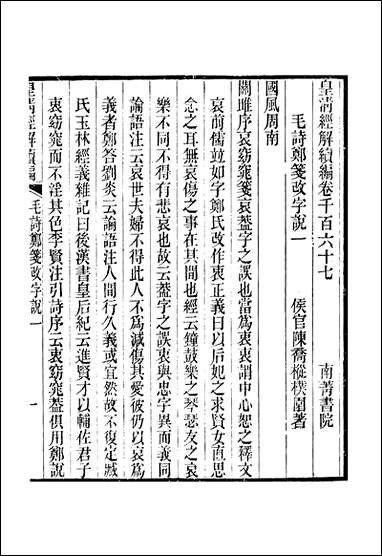 皇清經解續編卷千百六十七
南菁書院
毛詩鄭箋改字說一
侯官陳喬樅樸園著
國風周南
關雎序哀窈窕箋哀蓋字之誤也當爲衷衷謂中心恕之釋文
哀前儒竝如字鄭氏改作衷正義曰以后妃之求賢女直思
念之耳無哀傷之事在其閒也經云鐘鼓樂之琴瑟友之哀
樂不同不得有悲哀也故云蓋字之誤衷與忠字異而義同
論語注云哀世夫婦不得此人不爲減傷其愛彼仍以哀爲
義者鄭答劉炎云論語注人閒行久義或宜然故不復定臧
氏玉林經義雜記曰後漢書皇后紀云進賢才以輔佐君子
哀窈窕而不淫其色李賢注引詩序云衷窈窕蓋俱用鄭說
皇清經解續編
毛詩鄭箋改字說一
一